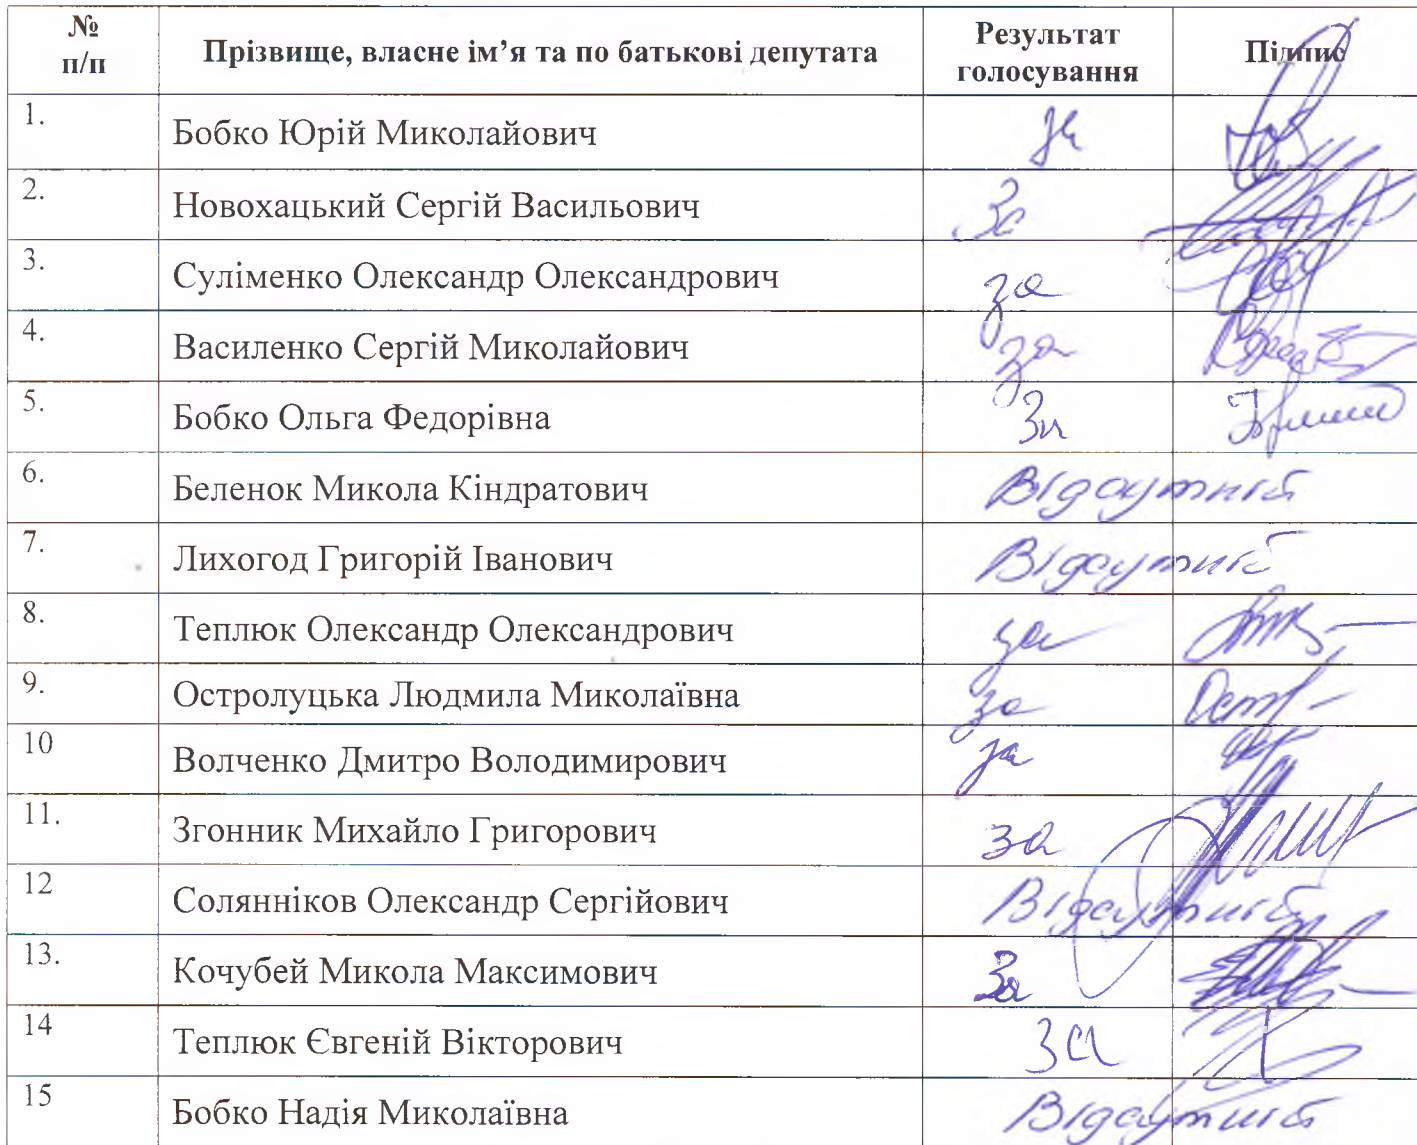 № п/п Прізвище, власне ім’я та по батькові депутата Результат голосування Підпис
1. Бобко Юрій Миколайович за
2. Новохацький Сергій Васильович За
3. Суліменко Олександр Олександрович за
4. Василенко Сергій Миколайович за
5. Бобко Ольга Федорівна За
6. Беленок Микола Кіндратович Відсутній
7. Лихогод Григорій Іванович Відсутній
8. Теплюк Олександр Олександрович за
9. Остролуцька Людмила Миколаївна за
10 Волченко Дмитро Володимирович за
11. Згонник Михайло Григорович за
12 Солянніков Олександр Сергійович Відсутній
13. Кочубей Микола Максимович За
14 Теплюк Євгеній Вікторович За
15 Бобко Надія Миколаївна Відсутній